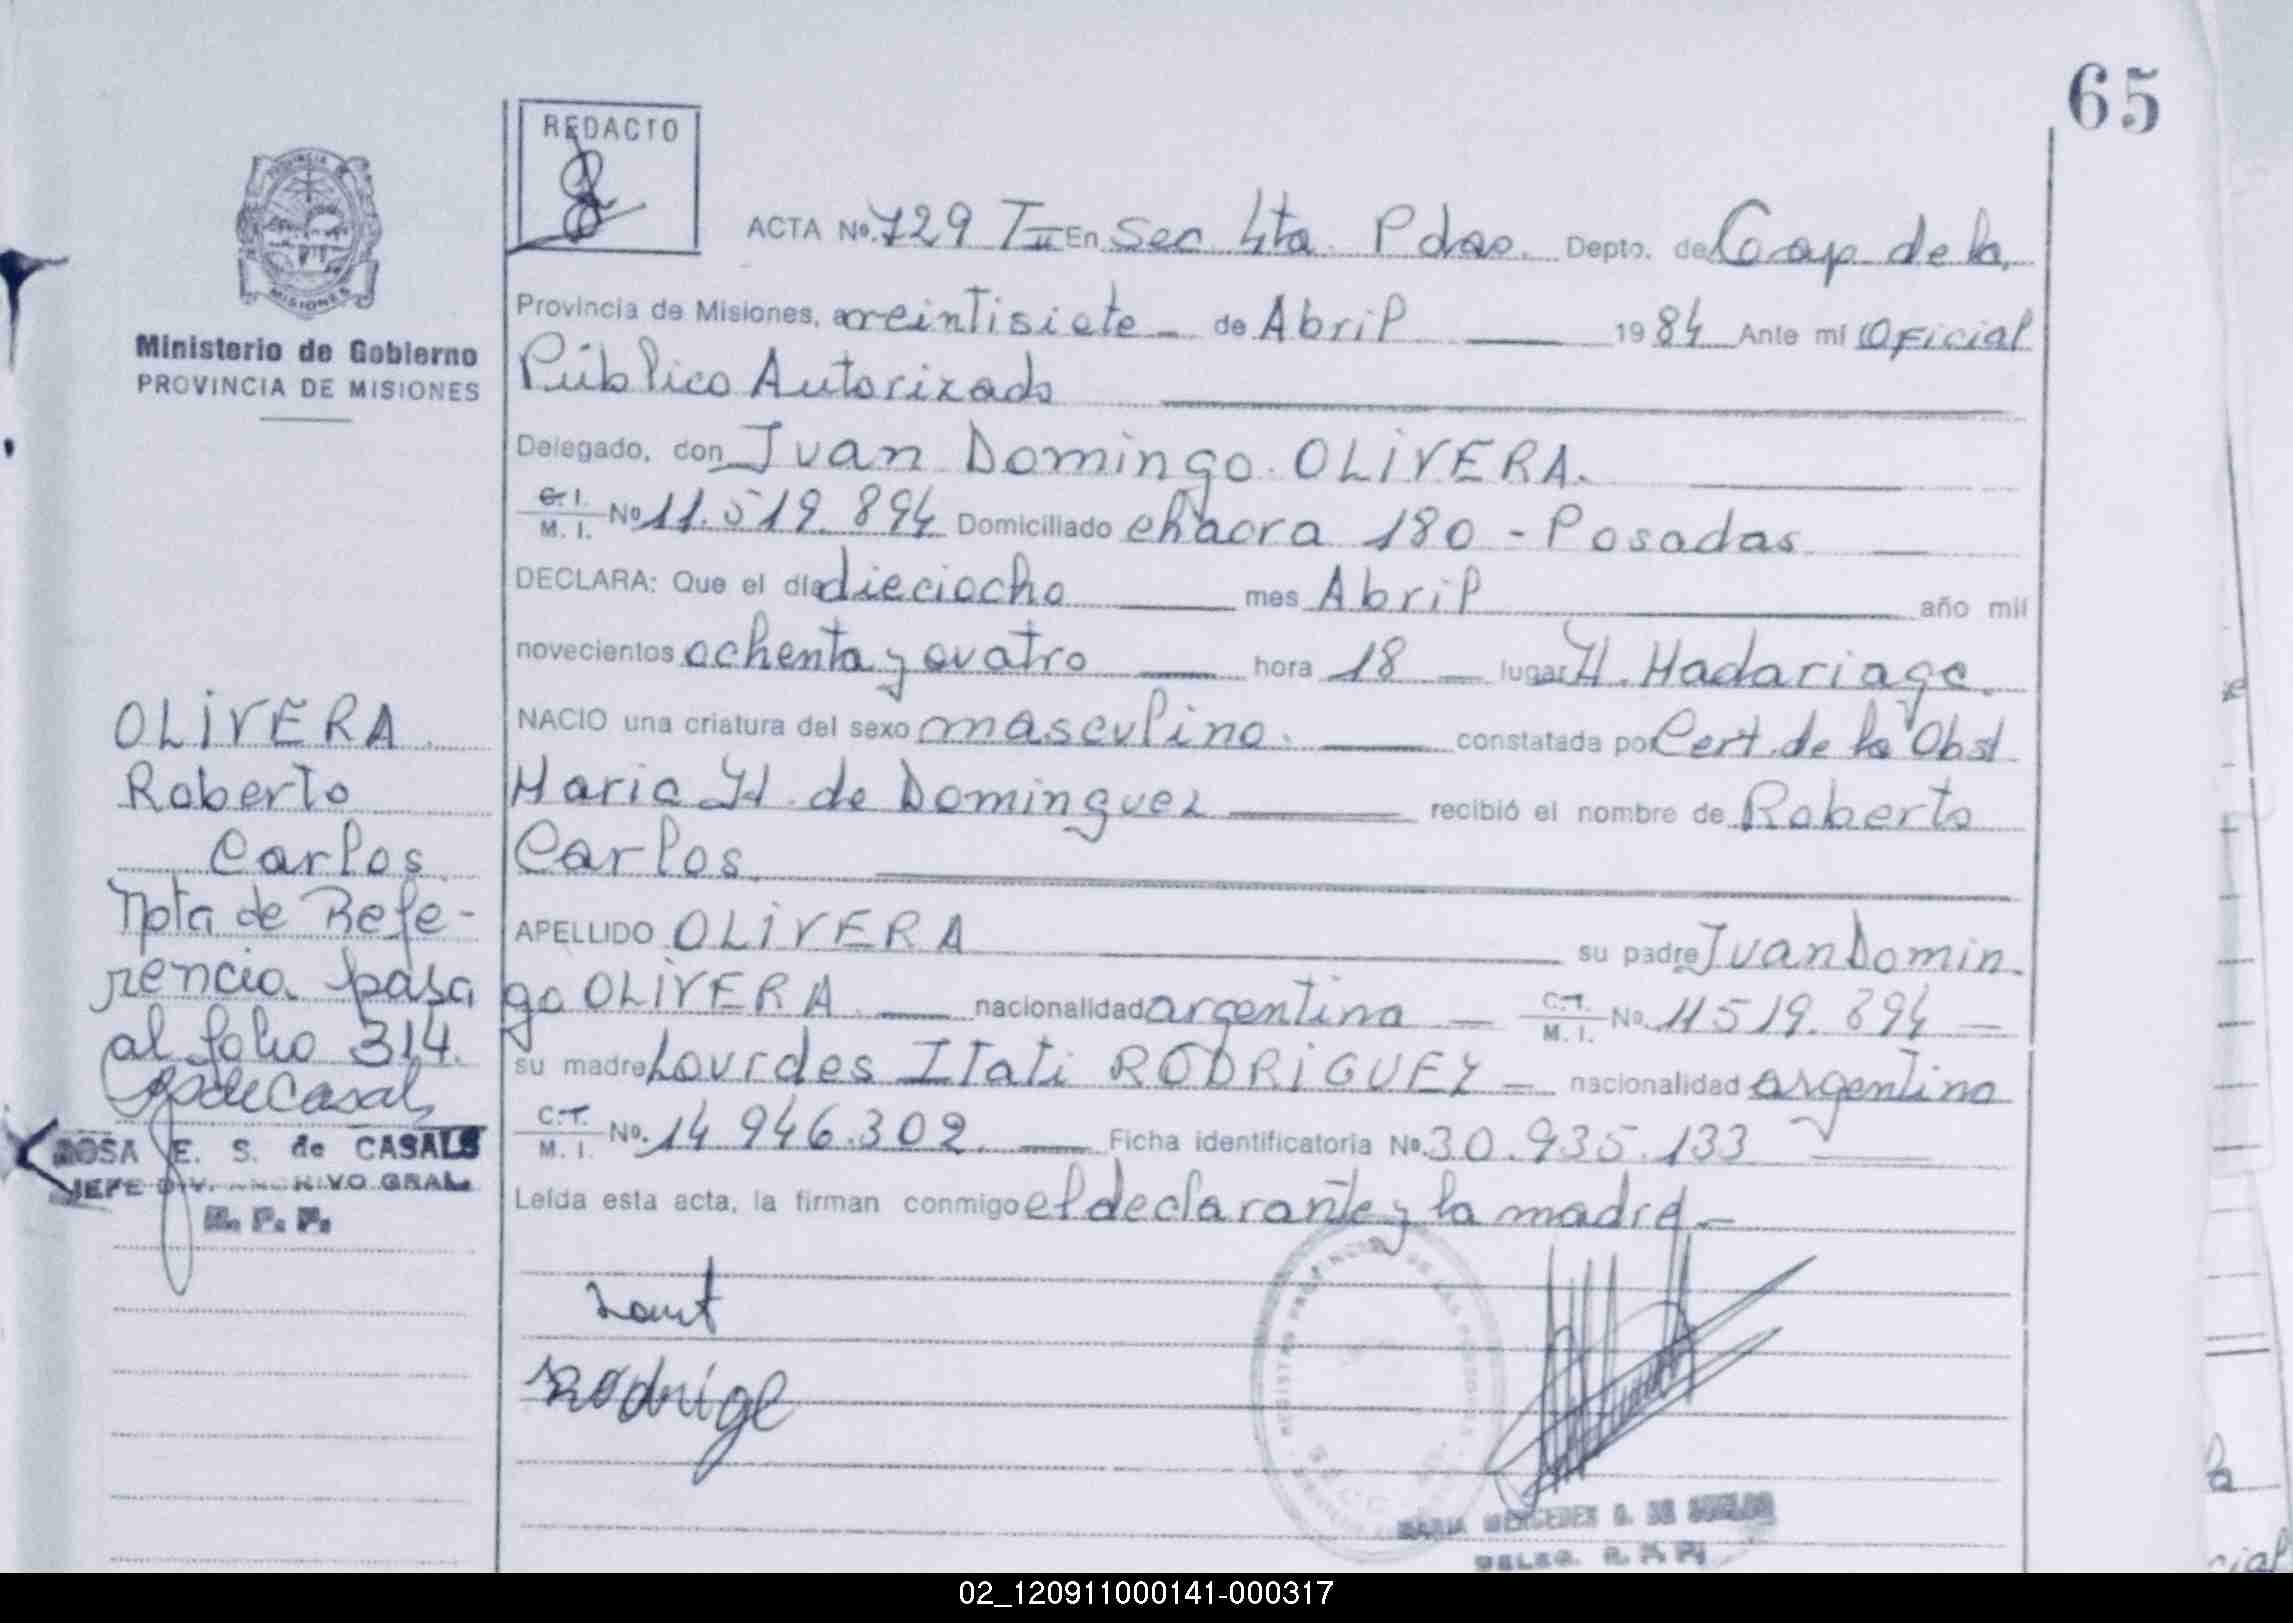 65
REDACTO
PROVINCIA DE
MISIONES
Ministerio de Gobierno
PROVINCIA DE MISIONES
ACTA Nº 729 TII En Sec 4ta. Pdas. Depto. de Cap. de la
Provincia de Misiones, a veintisiete de Abril 1984 Ante mí Oficial
Público Autorizado
Delegado, don Juan Domingo OLIVERA.
C. I. / M. I. Nº 11.519.894 Domiciliado chacra 180 - Posadas
DECLARA: Que el día dieciocho mes Abril año mil
novecientos ochenta y cuatro hora 18 lugar H. Madariaga.
NACIO una criatura del sexo masculino. constatada por Cert. de la Obst
Maria H. de Dominguez recibió el nombre de Roberto
Carlos.
APELLIDO OLIVERA su padre Juan Domin
go OLIVERA. nacionalidad argentina C. I. / M. I. Nº 11519.894
su madre Lourdes Itati RODRIGUEZ nacionalidad argentina
C. I. / M. I. Nº. 14 946.302. Ficha identificatoria Nº 30.935.133
Leída esta acta, la firman conmigo el declarante y la madre
Rodrige
OLIVERA
Roberto
Carlos
Nota de Refe-
rencia pasa
al folio 314.
ROSA E. S. de CASALS
JEFE DIV. ARCHIVO GRAL.
R. P. P.
MARIA MERCEDES
DELEG. R. P. P.
02_120911000141-000317